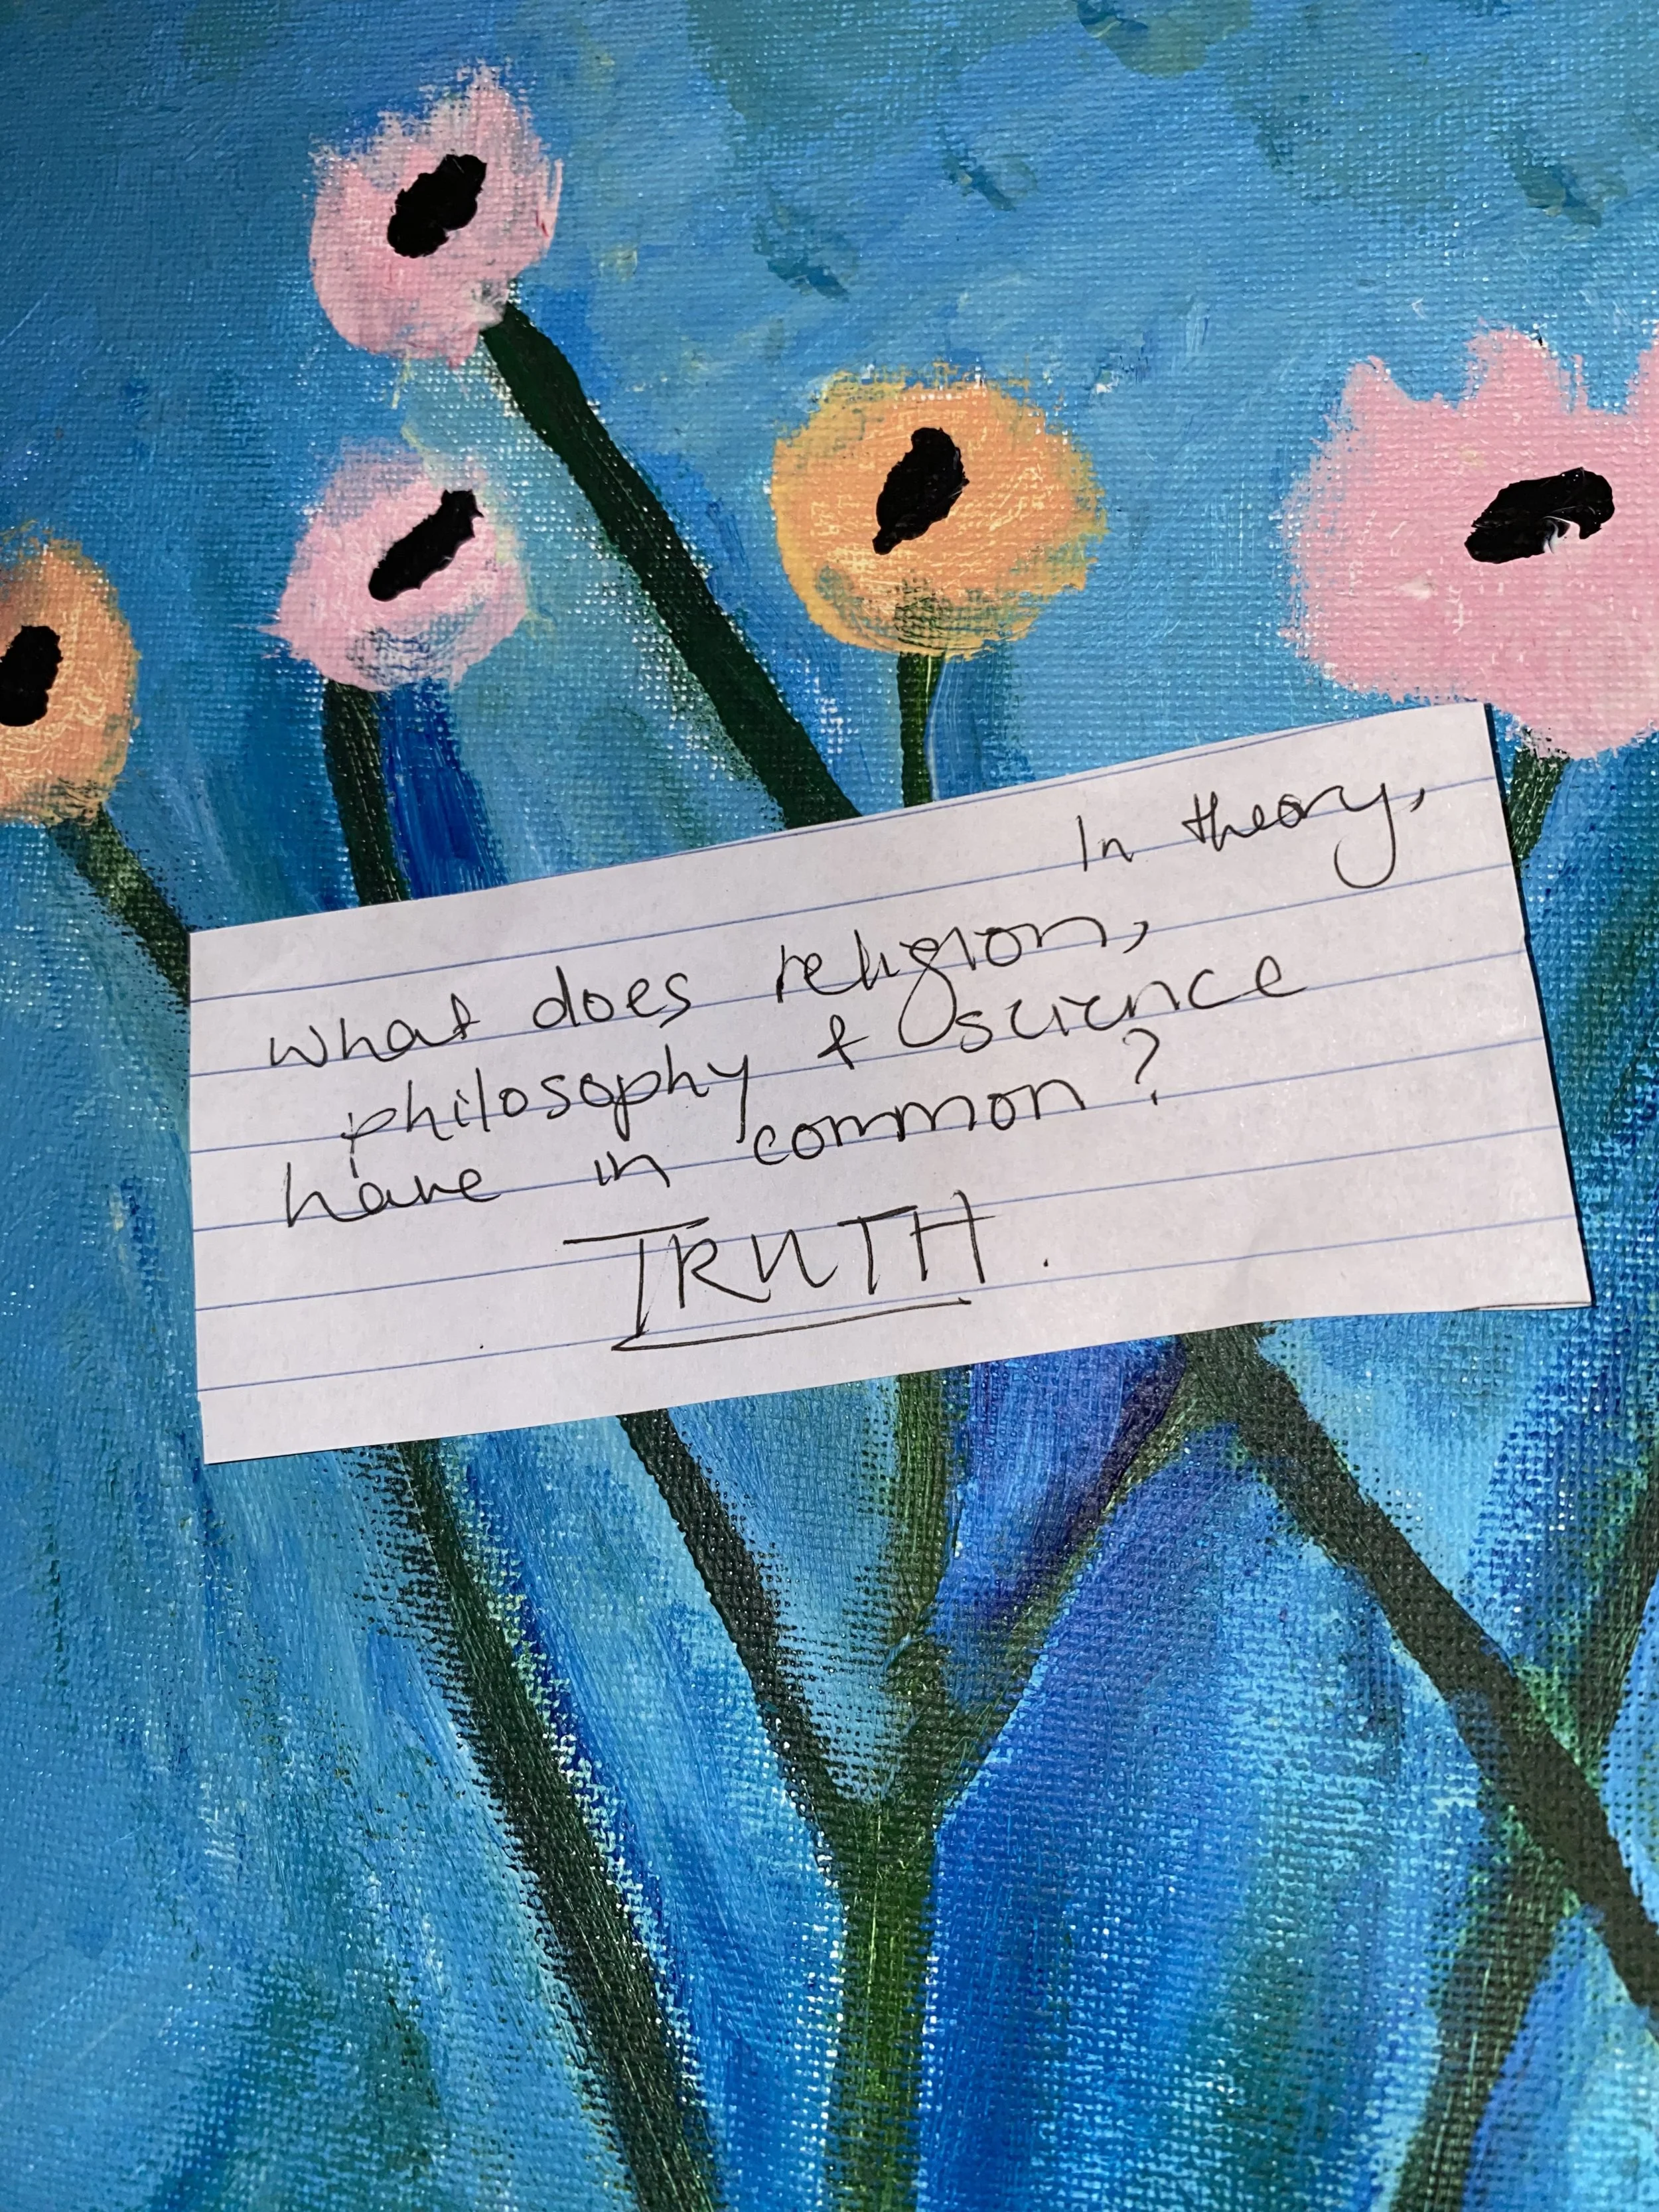 In theory,
What does religion,
philosophy & science
have in common?
TRUTH.